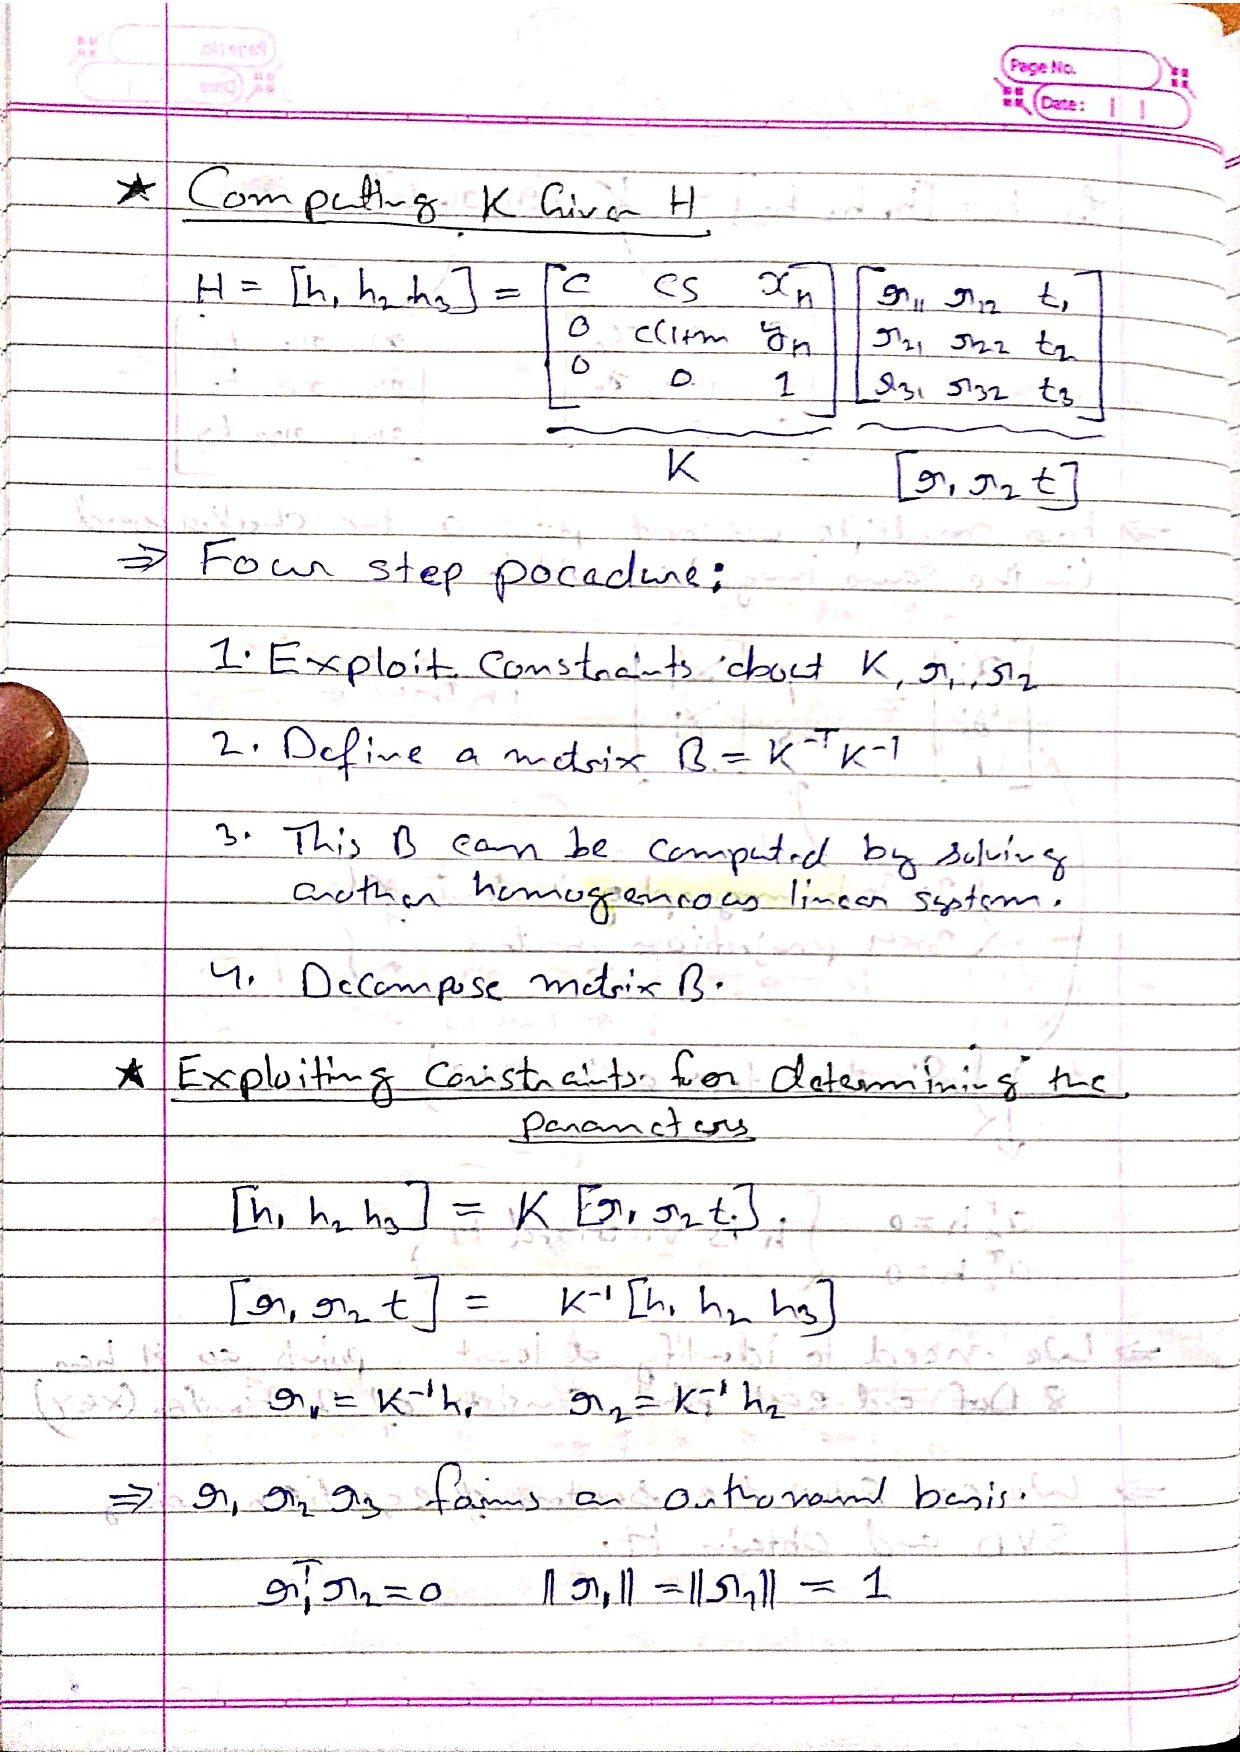 Page No.
Date:
★ Computing K Given H
H = [h₁ h₂ h₃] = [c cs xₙ; 0 c(1+m yₙ; 0 0 1] [r₁₁ r₁₂ t₁; r₂₁ r₂₂ t₂; r₃₁ r₃₂ t₃]
K [r₁ r₂ t]
⇒ Four step pocedure:
1. Exploit Constraints about K, r₁, r₂
2. Define a matrix B = K⁻ᵀK⁻¹
3. This B can be computed by solving
another homogeneous linear system.
4. Decompose matrix B.
★ Exploiting constraints for determining the
parameters
[h₁ h₂ h₃] = K [r₁ r₂ t].
[r₁ r₂ t] = K⁻¹ [h₁ h₂ h₃]
r₁ = K⁻¹h₁ r₂ = K⁻¹h₂
⇒ r₁ r₂ r₃ forms an basis.
r₁ᵀr₂ = 0 ||r₁|| = ||r₂|| = 1